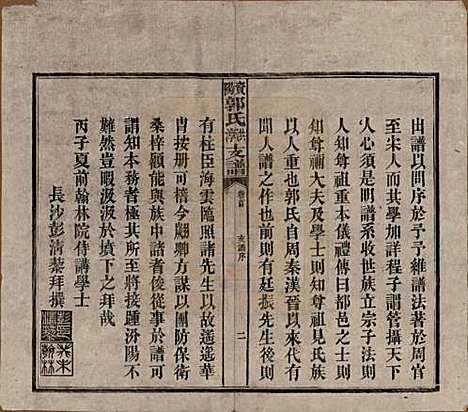 出譜以問序於予予維譜法著於周官
至宋人而其學加詳程子謂管攝天下
人心須是明譜系收世族立宗子法則
人知尊祖重本儀禮傳曰都邑之士則
知尊禰大夫及學士則知尊祖見氏族
以人重也郭氏自周秦漢晉以來代有
聞人譜之作也前則有廷振先生後則
郭氏支譜
卷首
支譜序
二
有柱臣海雲隨照諸先生以故遙遙華
胄按册可稽今翽卿方謀以團防保衛
桑梓顧能與族中諸者後從事於譜可
謂知本務者矣極其所至將接踵汾陽不
難然豈暇汲汲於墳下之拜哉
丙子夏前翰林院侍講學士
長沙彭清藜拜撰